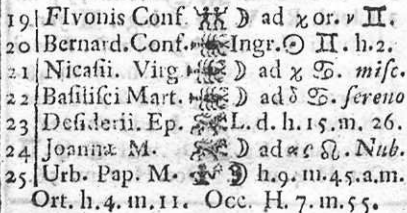 19 FIvonis Conf ☽ ad χ or. ν ♊.
20 Bernard. Conf. Ingr. ☉ ♊. h. 2.
21 Nicasii. Virg ☽ ad χ ♋. misc.
22 Basilisci Mart. ☽ ad δ ♋. sereno
23 Desiderii. Ep. L. d. h. 15. m. 26.
24 Joannæ M. ☽ ad ♌. Nub.
25. Urb. Pap. M. h. 9. m. 45. a. m.
Ort. h. 4. m. 11. Occ. H. 7. m. 55.